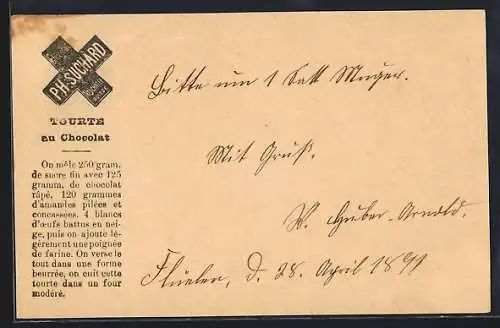 PH. SUCHARD
TOURTE
au Chocolat
On mêle 250 gram.
de sucre fin avec 125
gramm. de chocolat
râpé, 120 grammes
d'amandes pilées et
concassées, 4 blancs
d'œufs battus en nei-
ge, puis on ajoute lé-
gèrement une poignée
de farine. On verse le
tout dans une forme
beurrée, on cuit cette
tourte dans un four
modéré.
Bitte um 1 Sack
Mit Gruß.
W. Huber-Arnold.
Flüelen, d. 28. April 1891